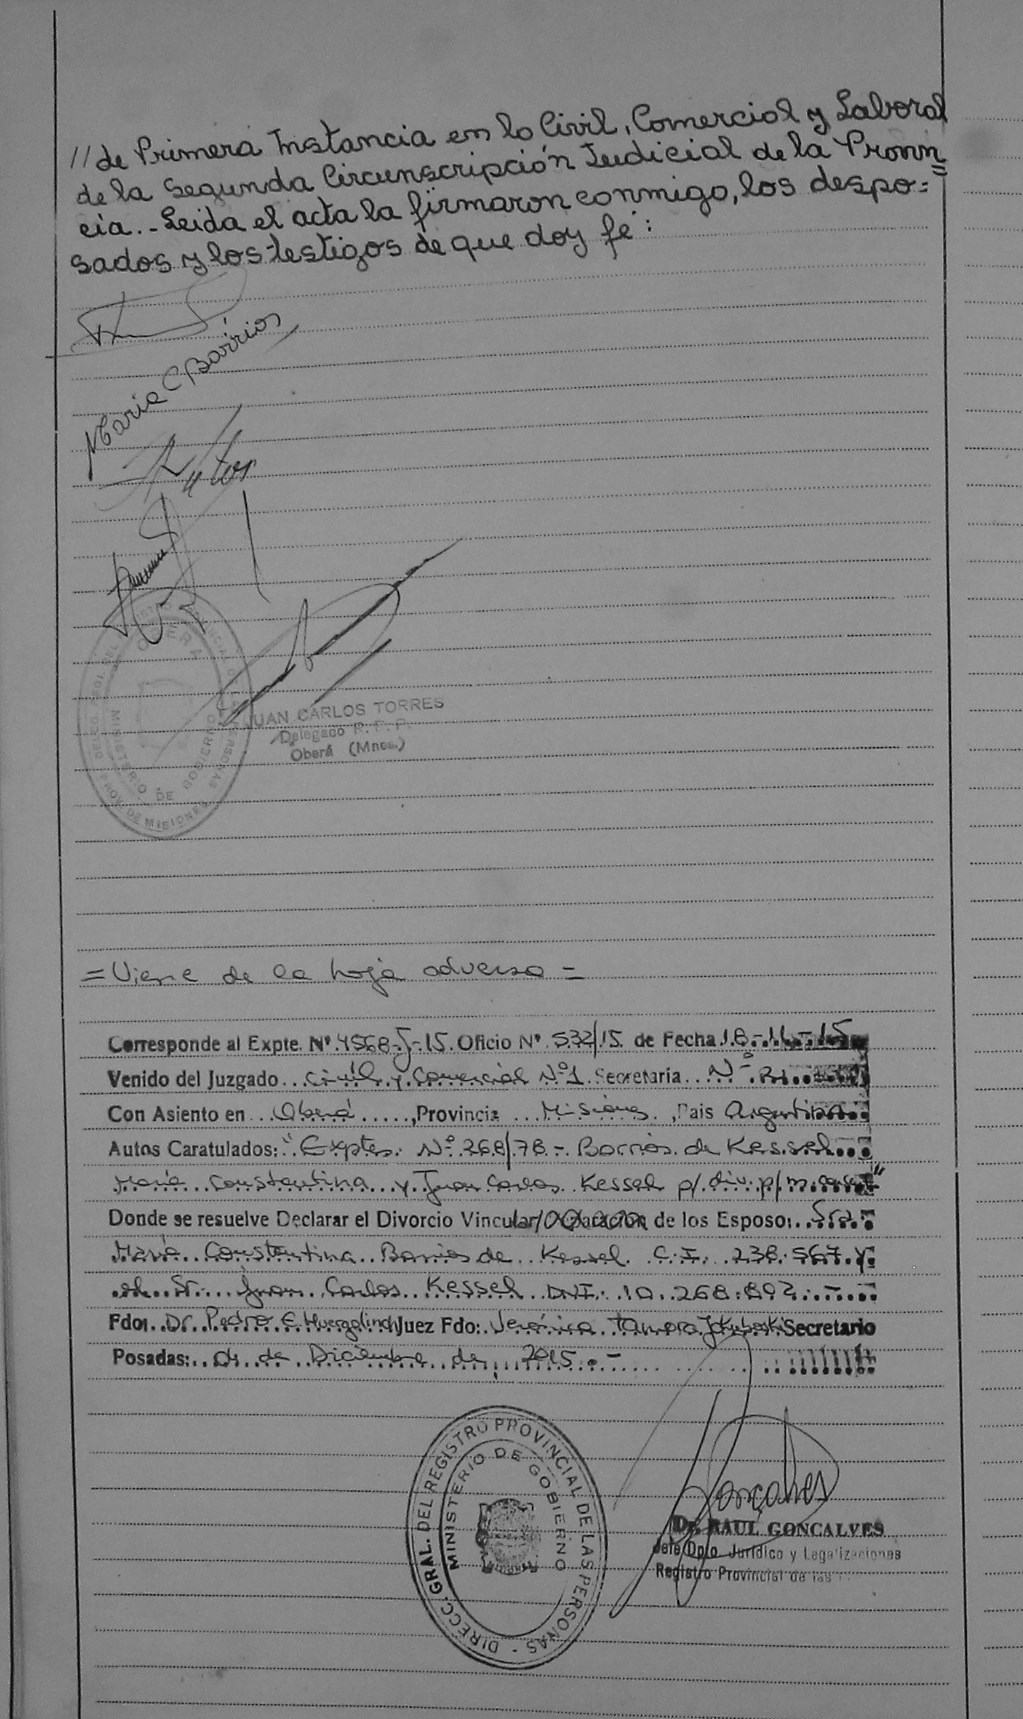 // de Primera Instancia en lo Civil, Comercial y Laboral
de la Segunda Circunscripción Judicial de la Provin=
cia.- Leida el acta la firmaron conmigo, los despo=
sados y los testigos de que doy fé:
Maria C Barrios
OBERA
MINISTERIO DE GOBIERNO
PROV. DE MISIONES
JUAN CARLOS TORRES
Delegado R. P. P.
Oberá (Mnes.)
= Viene de la hoja adversa =
Corresponde al Expte. Nº 4568-J-15. Oficio Nº 532/15. de Fecha 18-11-15
Venido del Juzgado Civil y Comercial Nº 1 Secretaria Nº
Con Asiento en Oberá, Provincia Misiones, Pais Argentina
Autos Caratulados: "Exptes. Nº 268/78 - Barrios de Kessel
María Constantina y Juan Carlos Kessel p/ div. p/ m.
Donde se resuelve Declarar el Divorcio Vincular/ de los Esposo: Sra.
María Constantina Barrios de Kessel C.I. 238.567 y
el Sr. Juan Carlos Kessel DNI. 10.268.892.-
Fdo: Dr. Pedro Juez Fdo: Verónica Tamara Secretario
Posadas: de Diciembre de 2015.-
DIRECC. GRAL. DEL REGISTRO PROVINCIAL DE LAS PERSONAS -
MINISTERIO DE GOBIERNO
Goncalves
Dr. RAUL GONCALVES
Jefe Dpto Jurídico y Legalizaciones
Registro Provincial de las